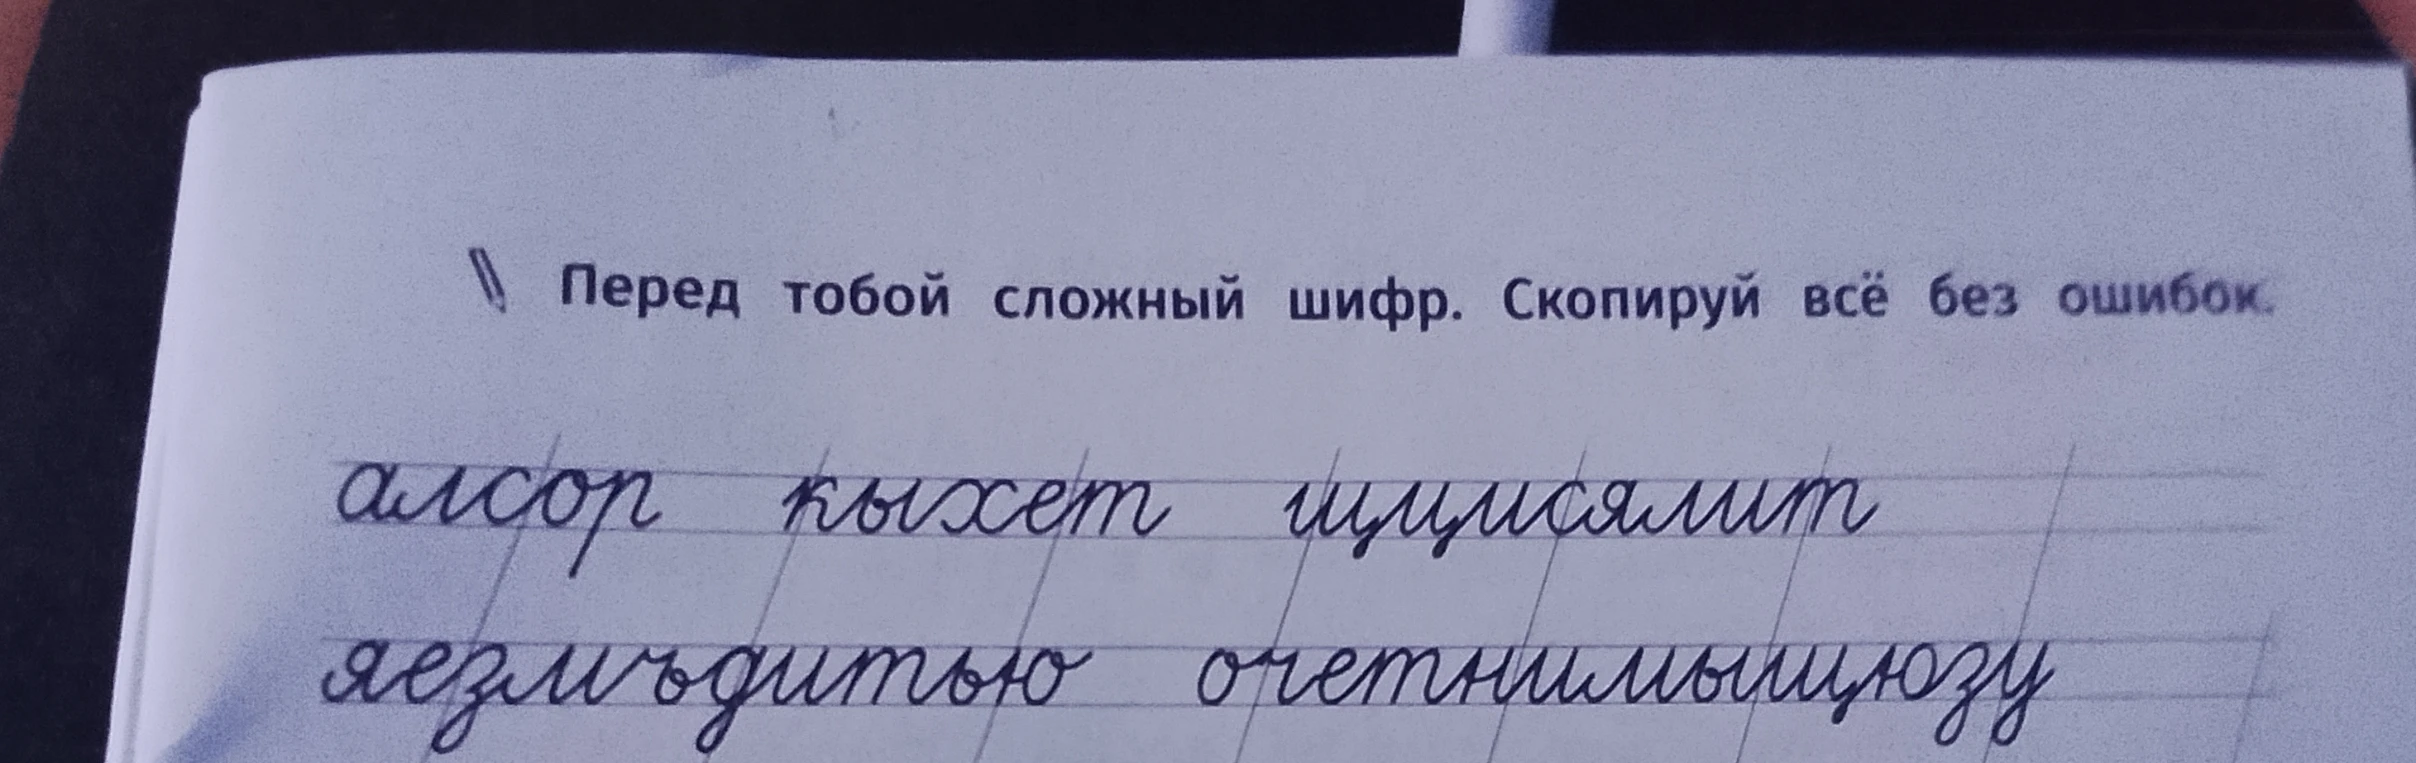 Перед тобой сложный шифр. Скопируй всё без ошибок.
алсор кыхет щцисямит
яезмъдитью очетнимыщюзу